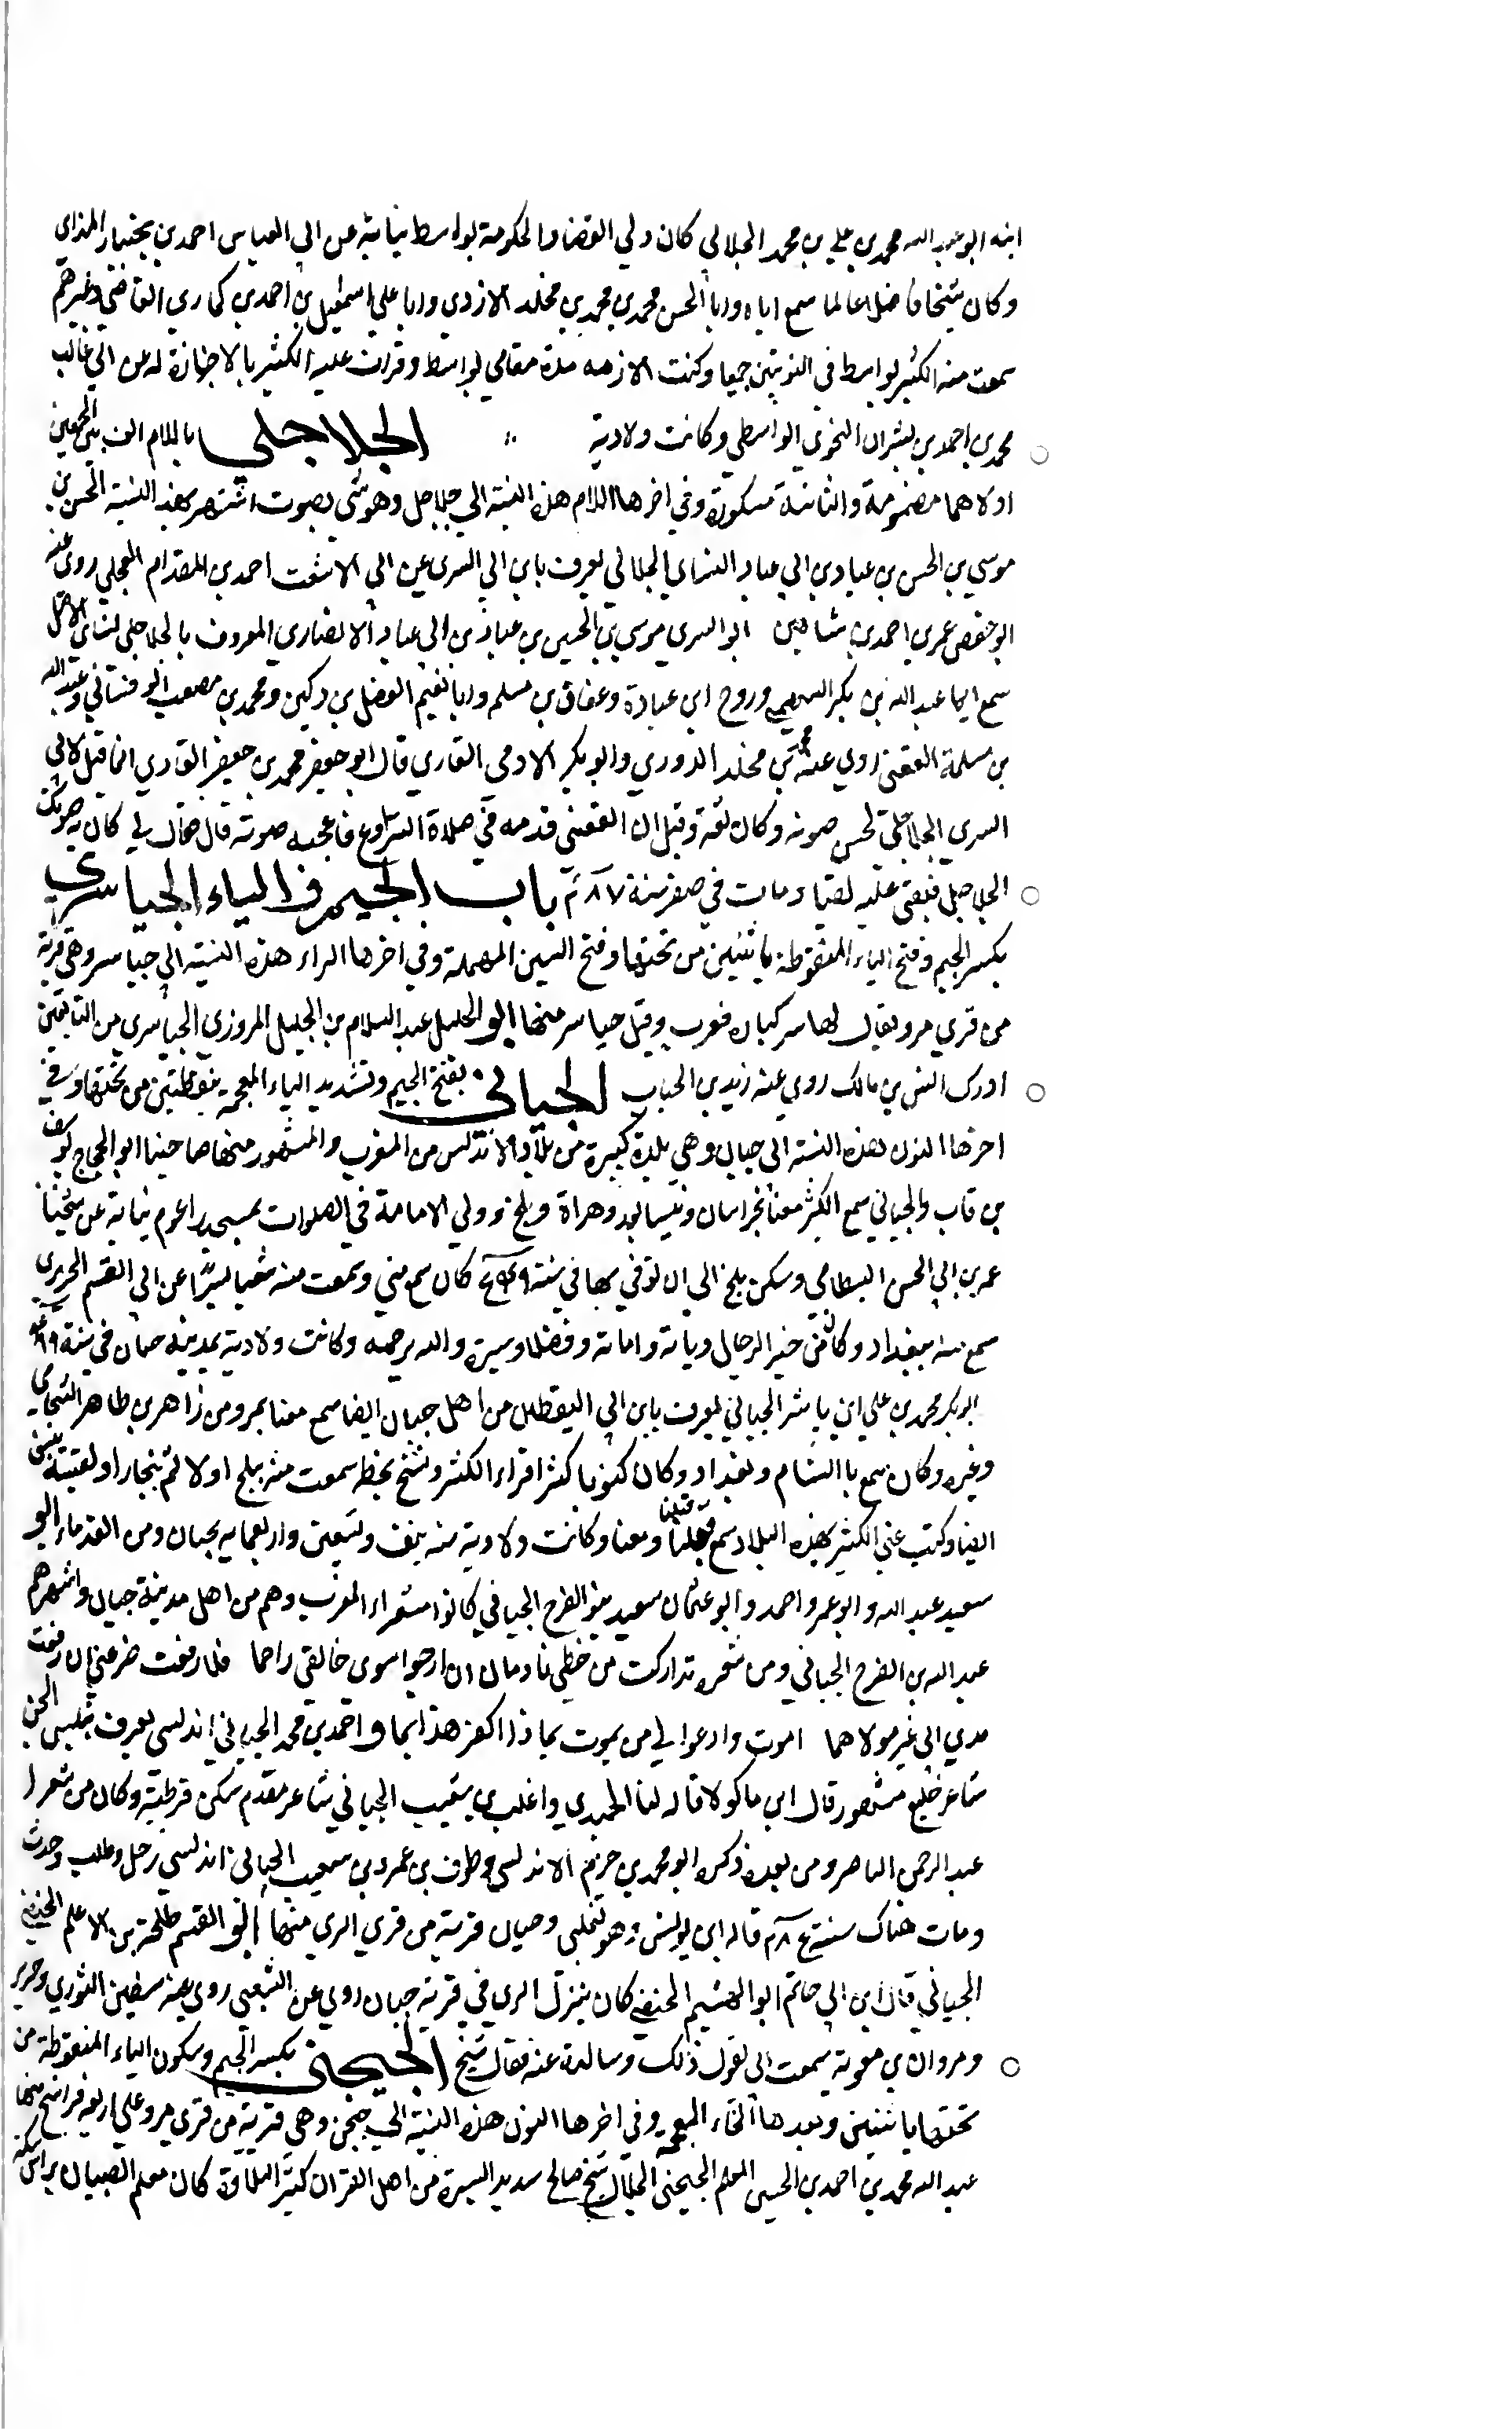 ابنه ابو عبد الله محمد بن علي بن محمد الجلابي كان ولي القضا والحكومة بواسط نيابة عن ابي العباس احمد بن بختيار المنداي
وكان شيخا فاضلا عالما سمع اباه وابا الحسن محمد بن محمد بن مخلد الازدي وابا علي اسمعيل بن احمد بن كماري القاضي وغيرهم
سمعت منه الكثير بواسط في النوبتين جميعا وكنت الازمه مدة مقامي بواسط وقرات عليه الكثير بالاجازة له عن ابي غالب
محمد بن احمد بن بشران النحوي الواسطي وكانت ولادته الجلاجلي باللام الف بين الجيمين
اولاهما مضمومة والثانية مكسورة وفي اخرها اللام هذه النسبة الي جلاجل وهو شي يصوت اشتهر بهذه النسبة الحسن بن
موسي بن الحسن بن عباد بن ابي عباد النساي الجلالي يعرف بابن ابي السري عن ابي الاشعث احمد بن المقدام العجلي روي عنه
ابو حفص عمر بن احمد بن شاهين ابو السري موسي بن الحسن بن عباد بن ابي عباد الانصاري المعروف بالجلاجلي نساي الاصل
سمع ابيا عبد الله بن بكر السهمي وروح ابن عبادة وعفان بن مسلم وابا نعيم الفضل بن دكين ومحمد بن مصعب القرقساني وعبد الله
بن مسلمة القعنبي روي عنه محمد بن مخلد الدوري وابو بكر الادمي القاري قال ابو جعفر محمد بن جعفر القاري انما قيل لابي
السري الجلاجلي لحسن صوته وكان ثقة وقيل ان القعنبي قدمه في صلاة التراويح فاعجبه صوته قال فقال لي كان صوتك
الجلاجل فبقي عليه لقبا ومات في صفر سنة ٢٨٧ باب الجيم والياء الجياسري
بكسر الجيم وفتح الياء المنقوطة باثنتين من تحتها وفتح السين المهملة وفي اخرها الراء هذه النسبة الي جياسر وهي قرية
من قري مرو يقال لها سركباره فعرب وقيل جياسر منها ابو الخليل عبد السلام بن الجليل المروزي الجياسري من التابعين
ادرك انس بن مالك روي عنه زيد بن الحباب الجياني بفتح الجيم وتشديد الياء المعجمة بنقطتين من تحتها وفي
اخرها النون هذه النسبة الي جيان وهي بلدة كبيرة من بلاد الاندلس من المغرب والمشهور منها صاحبنا ابو الحجاج يوسف
بن فاب والجياني سمع الكثير معنا بخراسان ونيسابور وهراة وبلخ وولي الامامة في الصلوات بمسجد راعوم نيابة عن شيخنا
عمر بن ابي الحسن البسطامي وسكن بلخ الي ان توفي بها في سنة كان سمع مني وسمعت منه شيا يسيرا عن ابي القسم الحريري
سمع منه ببغداد وكان من خير الرجال ديانة وامانة وفضلا وسيرة والله يرحمه وكانت ولادته بمدينة جيان في سنة
ابو بكر محمد بن علي ابن ياسر الجياني يعرف بابن ابي اليقظان من اهل جيان ايضا سمع معنا بمرو من زاهر بن طاهر الشحامي
وغيره وكان سمع بالشام وبغداد وكان كثيرا قراء الكثير ونسخ بخطه سمعت منه ببلخ اولا ثم ببخارا ولقيته بنسف
ايضا وكتب عني الكثير بهذه البلاد سمع قبلنا ومعنا وكانت ولادته سنة نيف وتسعين واربعمايه بجيان ومن القدماء ابو
سعيد عبد الله وابو عمرو احمد وابو عثمان سعيد بنو الفرج الجياني كانوا شعراء المغرب وهم من اهل مدينة جيان واشهرهم
عبد الله بن الفرج الجياني ومن شعره تداركت من خطاي نادما ان ارجوا سوي خالقي راحما فلا رفعت صرعتي ان رفعت
يدي الي غير مولاهما اموت وادعوا لي من يموت بماذا اكفر هذا بما واحمد بن محمد الجياني اندلسي يعرف بتلبس الجن
شاعر خليع مشهور قال ابن ماكولا قاله لنا الحميدي واغلب بن شعيب الجياني شاعر مقدم سكن قرطبة وكان من شعراء
عبد الرحمن الناصر ومن بعده ذكره ابو محمد بن حزم الاندلسي وطرف بن عمرو بن شعيب الجياني اندلسي رحل وطلب وحدث
ومات هناك سنة قاله ابن يونس وهو ثعلبي وجيان قرية من قري الري منها ابو القسم طلحة بن الاعلم الحنفي
الجياني قال ابن ابي حاتم ابو الهيثم الحنفي كان ينزل الري في قرية جيان روي عن الشعبي روي عنه سفين الثوري وجرير
ومروان بن معوية سمعت ابي يقول ذلك وسالته عنه فقال شيخ الجيخني بكسر الجيم وسكون الياء المنقوطة من
تحتها باثنتين وبعدها الخاء المعجمة وفي اخرها النون هذه النسبة الي جيخن وهي قرية من قري مرو علي اربعة فراسخ منها
عبد الله محمد بن احمد بن الحسن المعلم الجيخني الخلال شيخ صالح سديد السيرة من اهل القران كثير التلاوة كان معلم الصبيان براس سكة